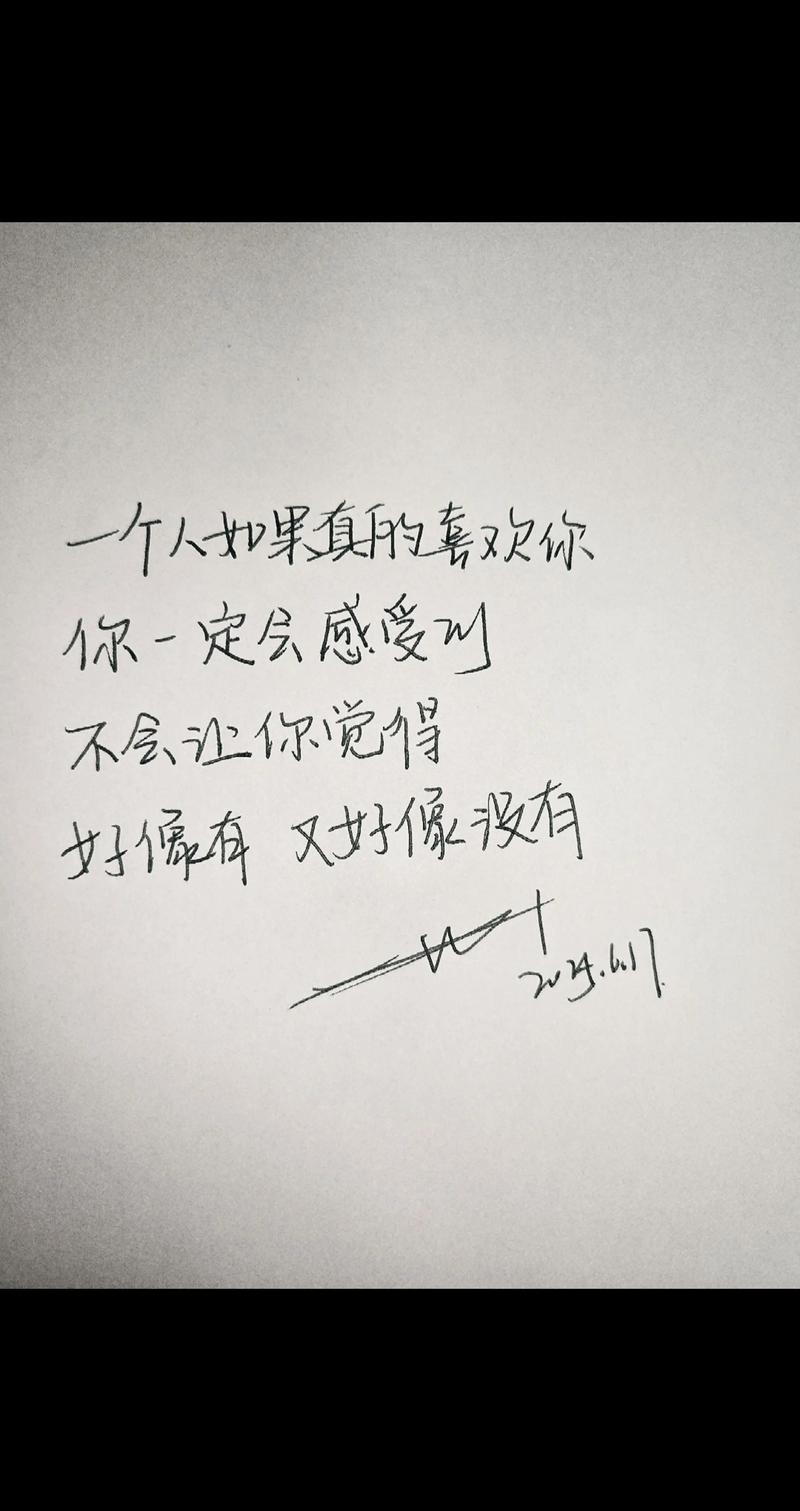 一个人如果真的喜欢你
你一定会感受到
不会让你觉得
好像有 又好像没有